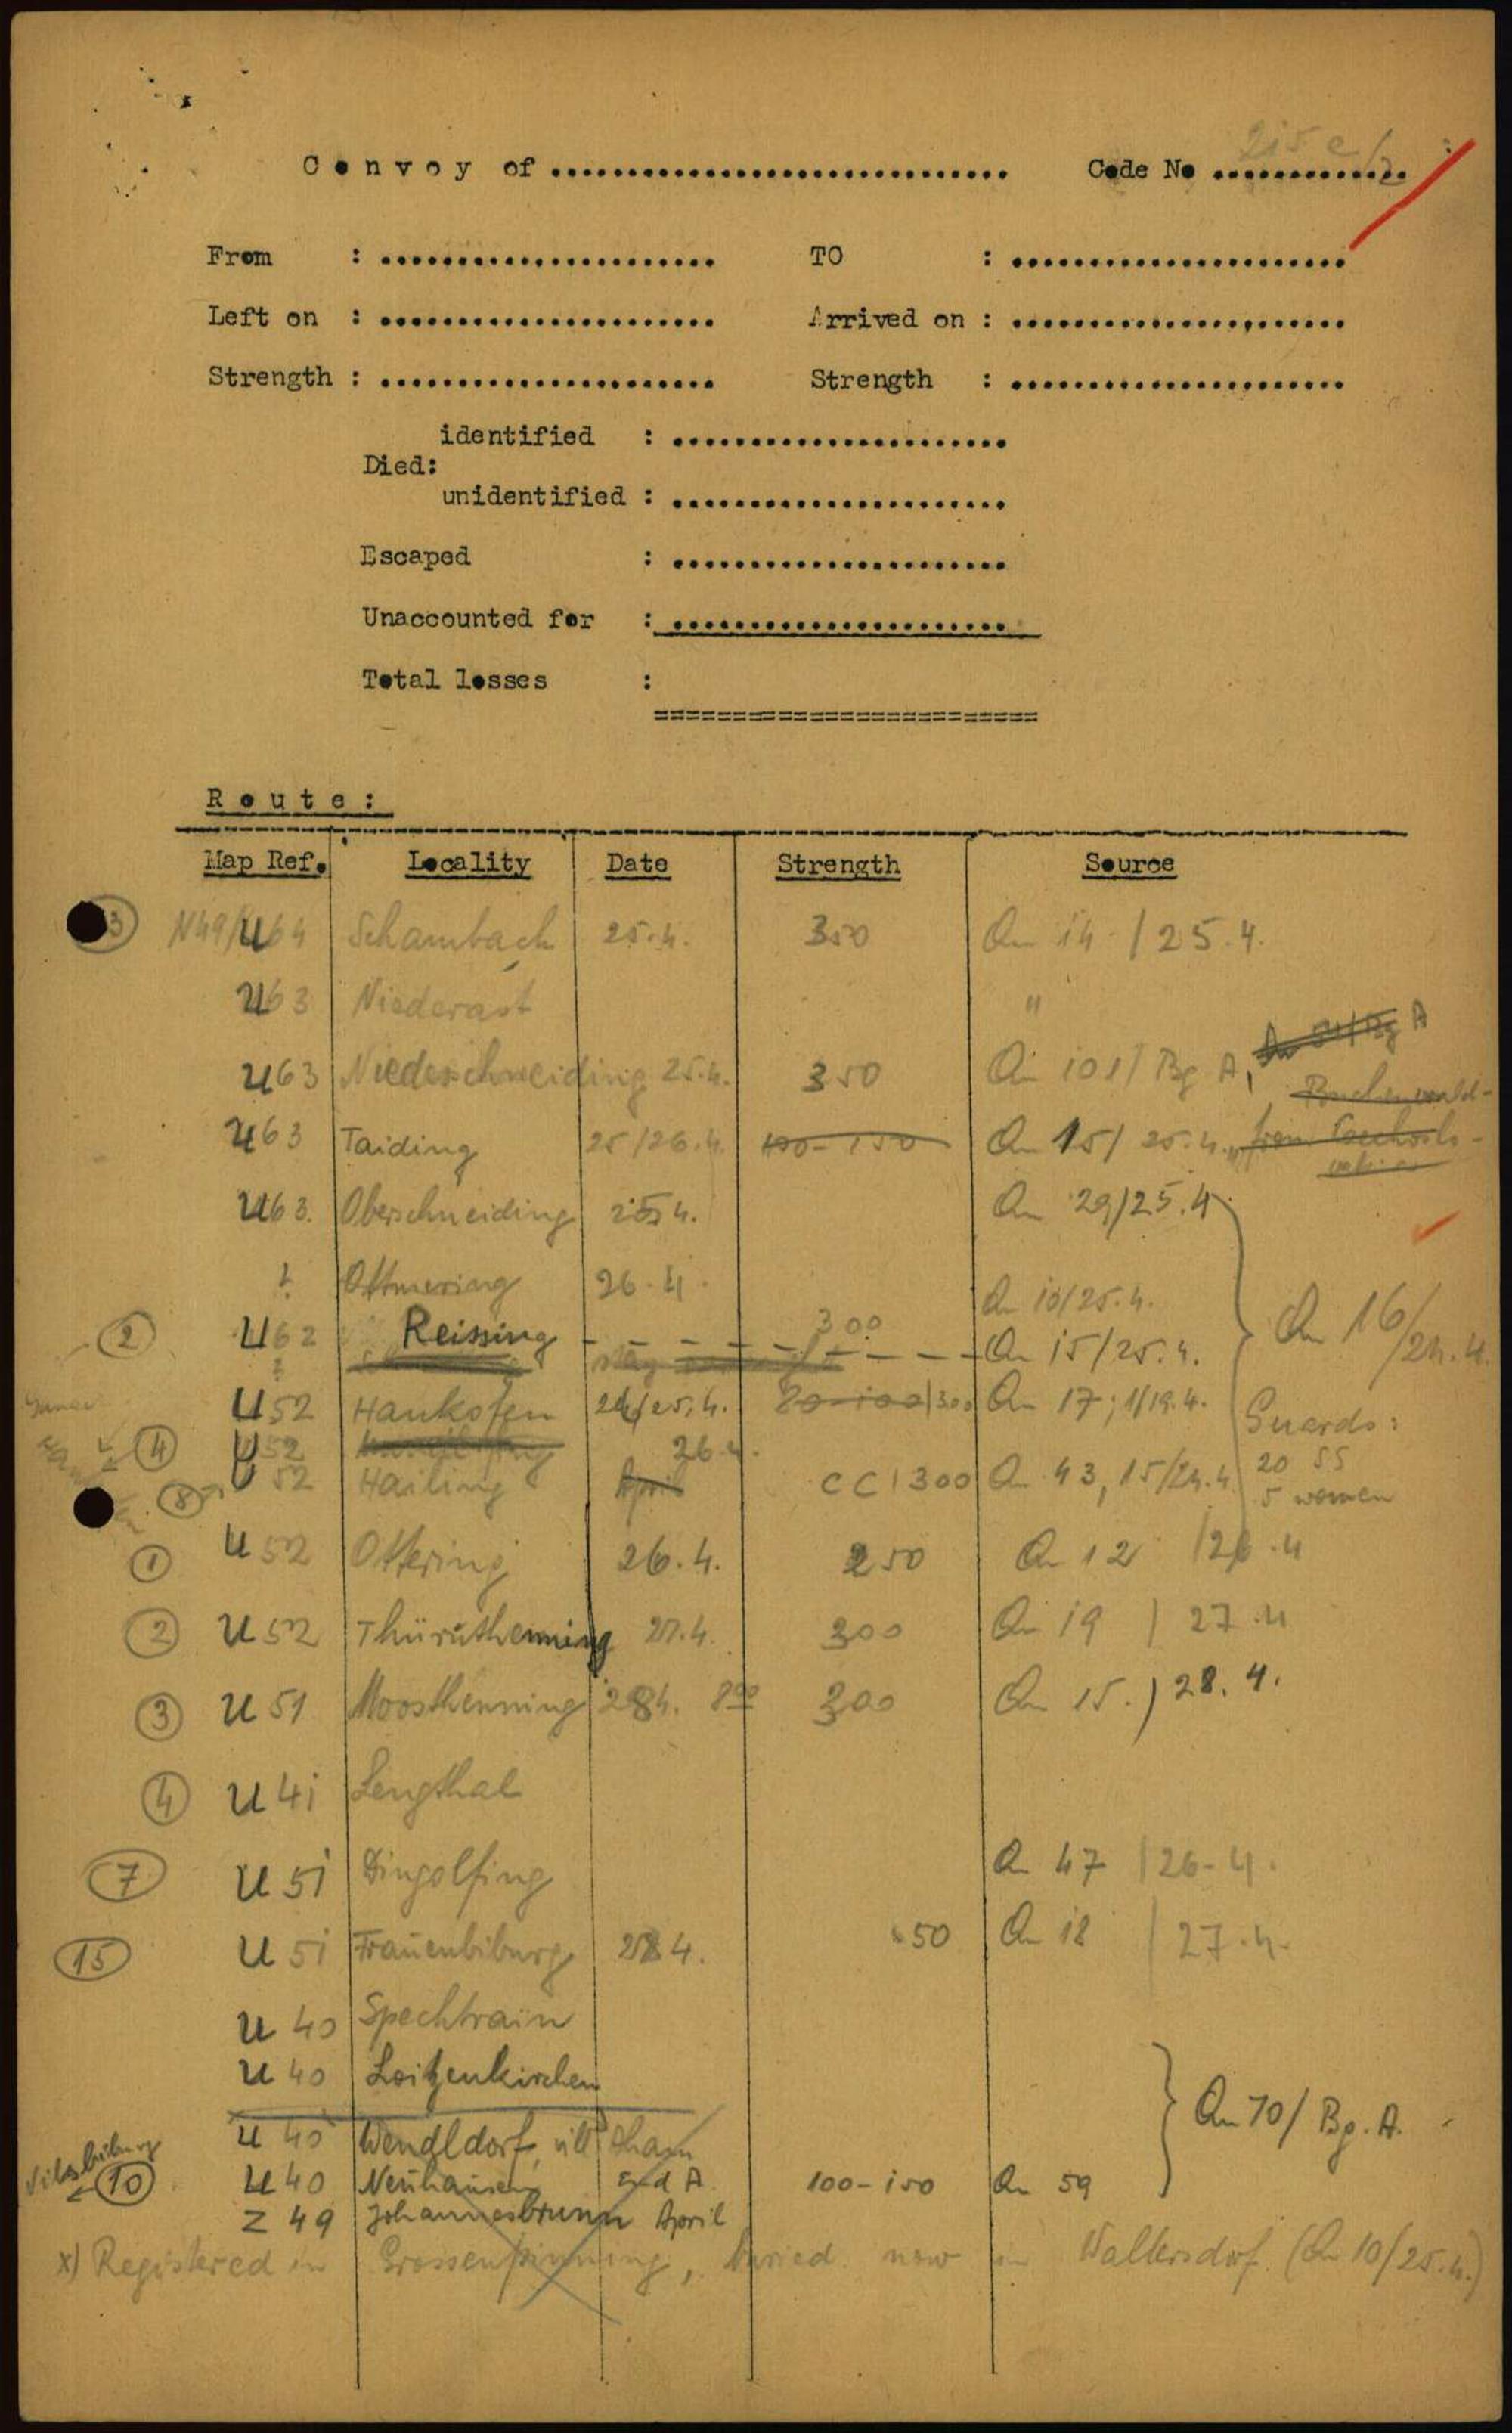 Convoy of .............................. Code No .............
From : ...................... TO : ......................
Left on : ...................... Arrived on : ......................
Strength : ...................... Strength : ......................
identified : ......................
Died:
unidentified : ......................
Escaped : ......................
Unaccounted for : ......................
Total losses :
=========================
Route:
Map Ref. Locality Date Strength Source
3 N49/U64 Schambach 25.4. 350 An 14 / 25.4.
U63 Niederast "
U63 Niederschneiding 25.4. 350 An 101/ Bg A,
U63 Taiding 25/26.4. 100-150 An 15/ 25.4.
U63. Oberschneiding 25.4. An 29/25.4
? Ottmering 26.4. An 10/25.4.
2 U62 Reissing 300 An 15/25.4. An 16/24.4.
U52 Hankofen 24/25.4. 80-100/300 An 17; 1/19.4. Guards:
4 U52 26.4. 20 SS
8 U52 Hailing April CC/300 An 43, 15/24.4. 5 women
1 U52 Ottering 26.4. 250 An 12 /26.4
2 U52 Thürüthenning 27.4. 300 An 19 / 27.4
3 U51 Moosthenning 28 4. 8⁰⁰ 300 An 15. / 28. 4.
4 U41 Lengthal
7 U51 Dingolfing An 47 / 26-4.
15 U51 Frauenbiburg 28 4. 50 An 18 / 27.4.
U 40 Spechtrain
U 40 Loitzenkirchen
U 40 Wendldorf, vill Aham An 70/ Bg. A.
Vilsbiburg
10 U40 Neuhausen End A. 100-150 An 59
Z 49 Johannesbrunn April
x) Registered in Grossenpinning, buried now in Wallersdorf. (An 10/25.4.)